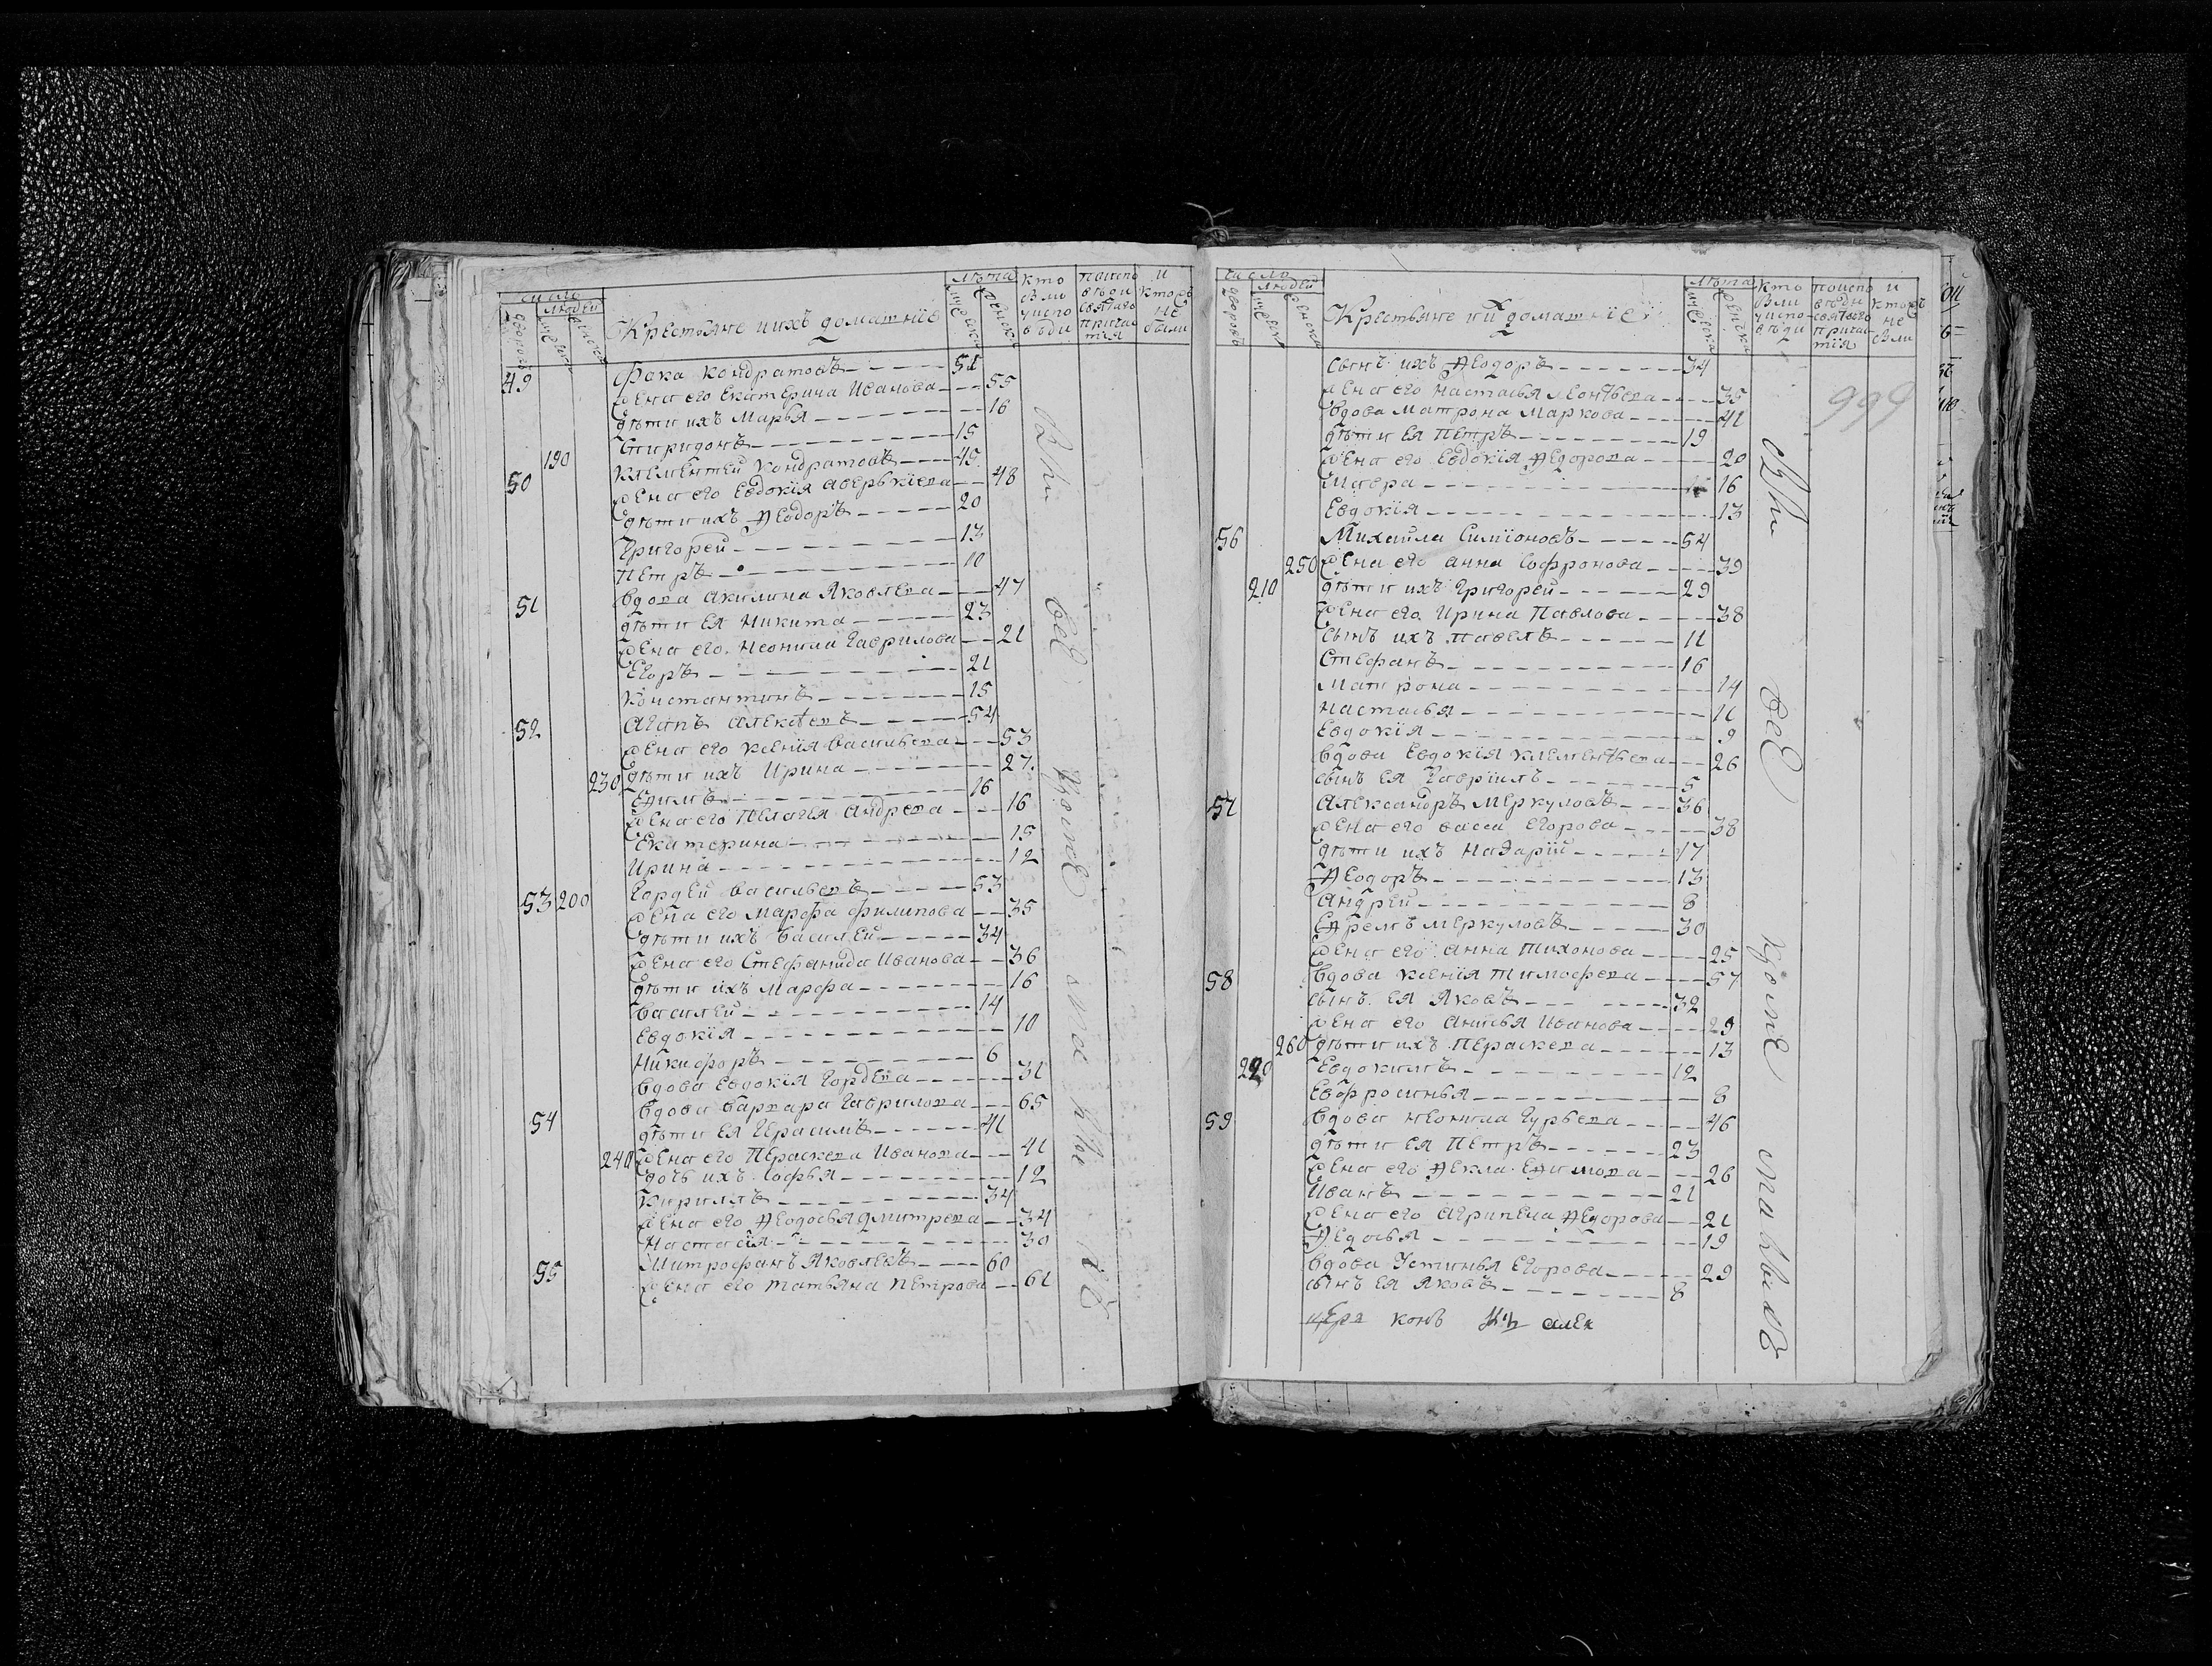 число
людей
Крестьяне и ихъ домашніе
лѣта
кто
были
у испо
вѣди
по испо
вѣди
святаго
прича
тія
и
кто
не
были
49 Фока Кондратовъ 51
жена его Екатерина Иванова 55
дѣти ихъ Марья 16
190 Спиридонъ 15
50 Климентей Кондратовъ 45
жена его Евдокія Аверькіева 48
дѣти ихъ Ѳеодоръ 20
Григорей 13
Петръ 10
51 Вдова Акилина Яковлева 47
дѣти ея Никита 23
жена его Неонила Гаврилова 21
Егоръ 21
Константинъ 15
52 Агапъ Алексѣевъ 54
жена его Ксенія Васильева 53
230 дѣти ихъ Ирина 27
Еѳимъ 16
жена его Пелагея Андреева 16
Екатерина 15
Ирина 12
53 200 Гордей Васильевъ 53
жена его Марфа Филипова 35
дѣти ихъ Василей 34
жена его Стефанида Иванова 36
дѣти ихъ Марфа 16
Василей 14
Евдокія 10
Никифоръ 6
Вдова Евдокія Гордева 31
54 Вдова Варвара Гаврилова 65
дѣти ея Герасимъ 41
240 жена его Пераскева Иванова 41
дочь ихъ Софья 12
Кирилъ 34
жена его Ѳеодосья Дмитрева 34
Настасія 30
55 Митрофанъ Яковлевъ 60
жена его Татьяна Петрова 61
Вси
число
людей
Крестьяне и ихъ домашніе
лѣта
кто
были
у испо
вѣди
по испо
вѣди
святаго
прича
тія
и
кто
не
были
999
сынъ ихъ Ѳеодоръ 34
жена его Настасья Леонтьева 35
Вдова Матрона Маркова 41
дѣти ея Петръ 19
жена его Евдокія Ѳедорова 20
Мавра 16
Евдокія 13
56 Михайла Симіоновъ 54
250 жена его Анна Софронова 39
210 дѣти ихъ Григорей 29
жена его Ирина Павлова 38
сынъ ихъ Павелъ 11
Стефанъ 16
Матрона 14
Настасья 11
Евдокія 9
Вдова Евдокія Климентьева 26
сынъ ея Гавріилъ 5
57 Александръ Меркуловъ 36
жена его Васса Егорова 38
дѣти ихъ Назарій 17
Ѳеодоръ 13
Андрей 8
Еѳремъ Меркуловъ 30
жена его Анна Тихонова 25
58 Вдова Ксенія Тимофеева 57
сынъ ея Яковъ 32
жена его Анисья Иванова 29
260 дѣти ихъ Пераскева 13
220 Евдокимъ 12
Евфросинья 8
59 Вдова Неонила Гурьева 46
дѣти ея Петръ 23
жена его Ѳекла Еѳимова 26
Иванъ 21
жена его Агрипена Ѳедорова 21
Ѳедосья 19
Вдова Устинья Егорова 29
сынъ ея Яковъ 8
алек
Вси